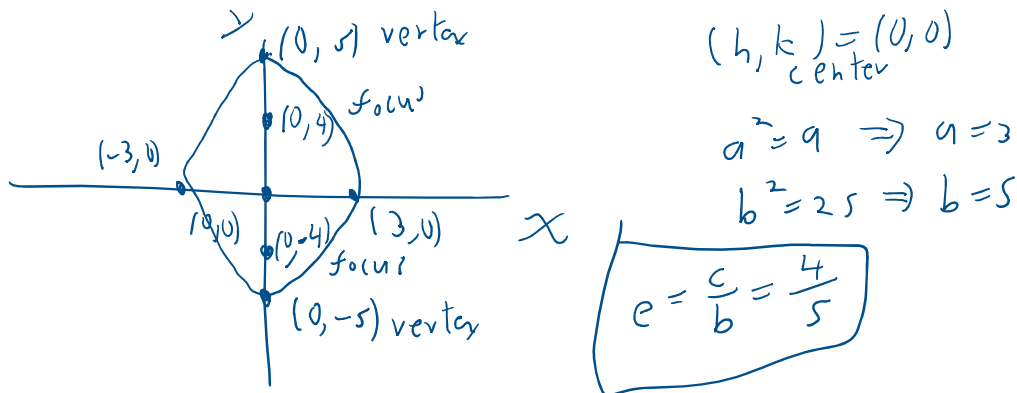 y
(0, 5) vertex
(0, 4) focus
(-3, 0)
(0, 0)
(3, 0)
x
(0, -4)
focus
(0, -5) vertex
(h, k) = (0, 0)
center
a² = 9 ⇒ a = 3
b² = 25 ⇒ b = 5
e = c/b = 4/5